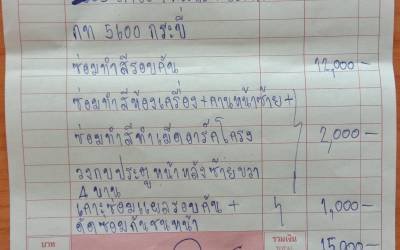 กท 5600 กระบี่
ซ่อมทำสีรอบคัน 12,000-
ซ่อมทำสีห้องเครื่อง+คานหน้าซ้าย+
ซ่อมทำสีทำเม็ดอาร์คโครง 2,000-
วงกบประตูหน้าหลังซ้ายขวา
4 บาน
เคาะซ่อมแผลรอบคัน + 1,000-
ดัดซ่อมกันชนหน้า
บาท รวมเงิน 15,000-
TOTAL